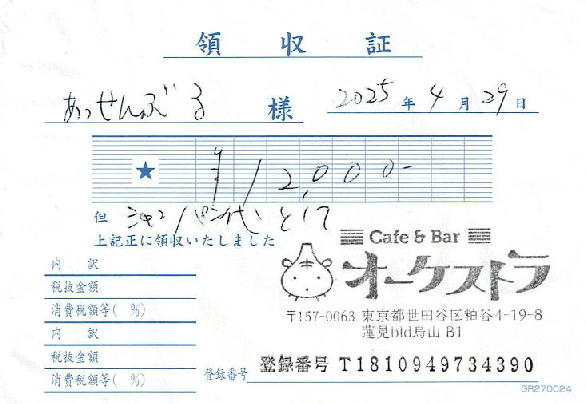 領収証
あっせんぶる 様 2025年4月29日
★ ¥12,000-
但 シャンパン代として
上記正に領収いたしました
Cafe & Bar
オーケストラ
〒157-0063 東京都世田谷区粕谷4-19-8
蓮見bld烏山 B1
内訳
税抜金額
消費税額等( %)
内訳
税抜金額
消費税額等( %)
登録番号 登録番号 T1810949734390
GR270024